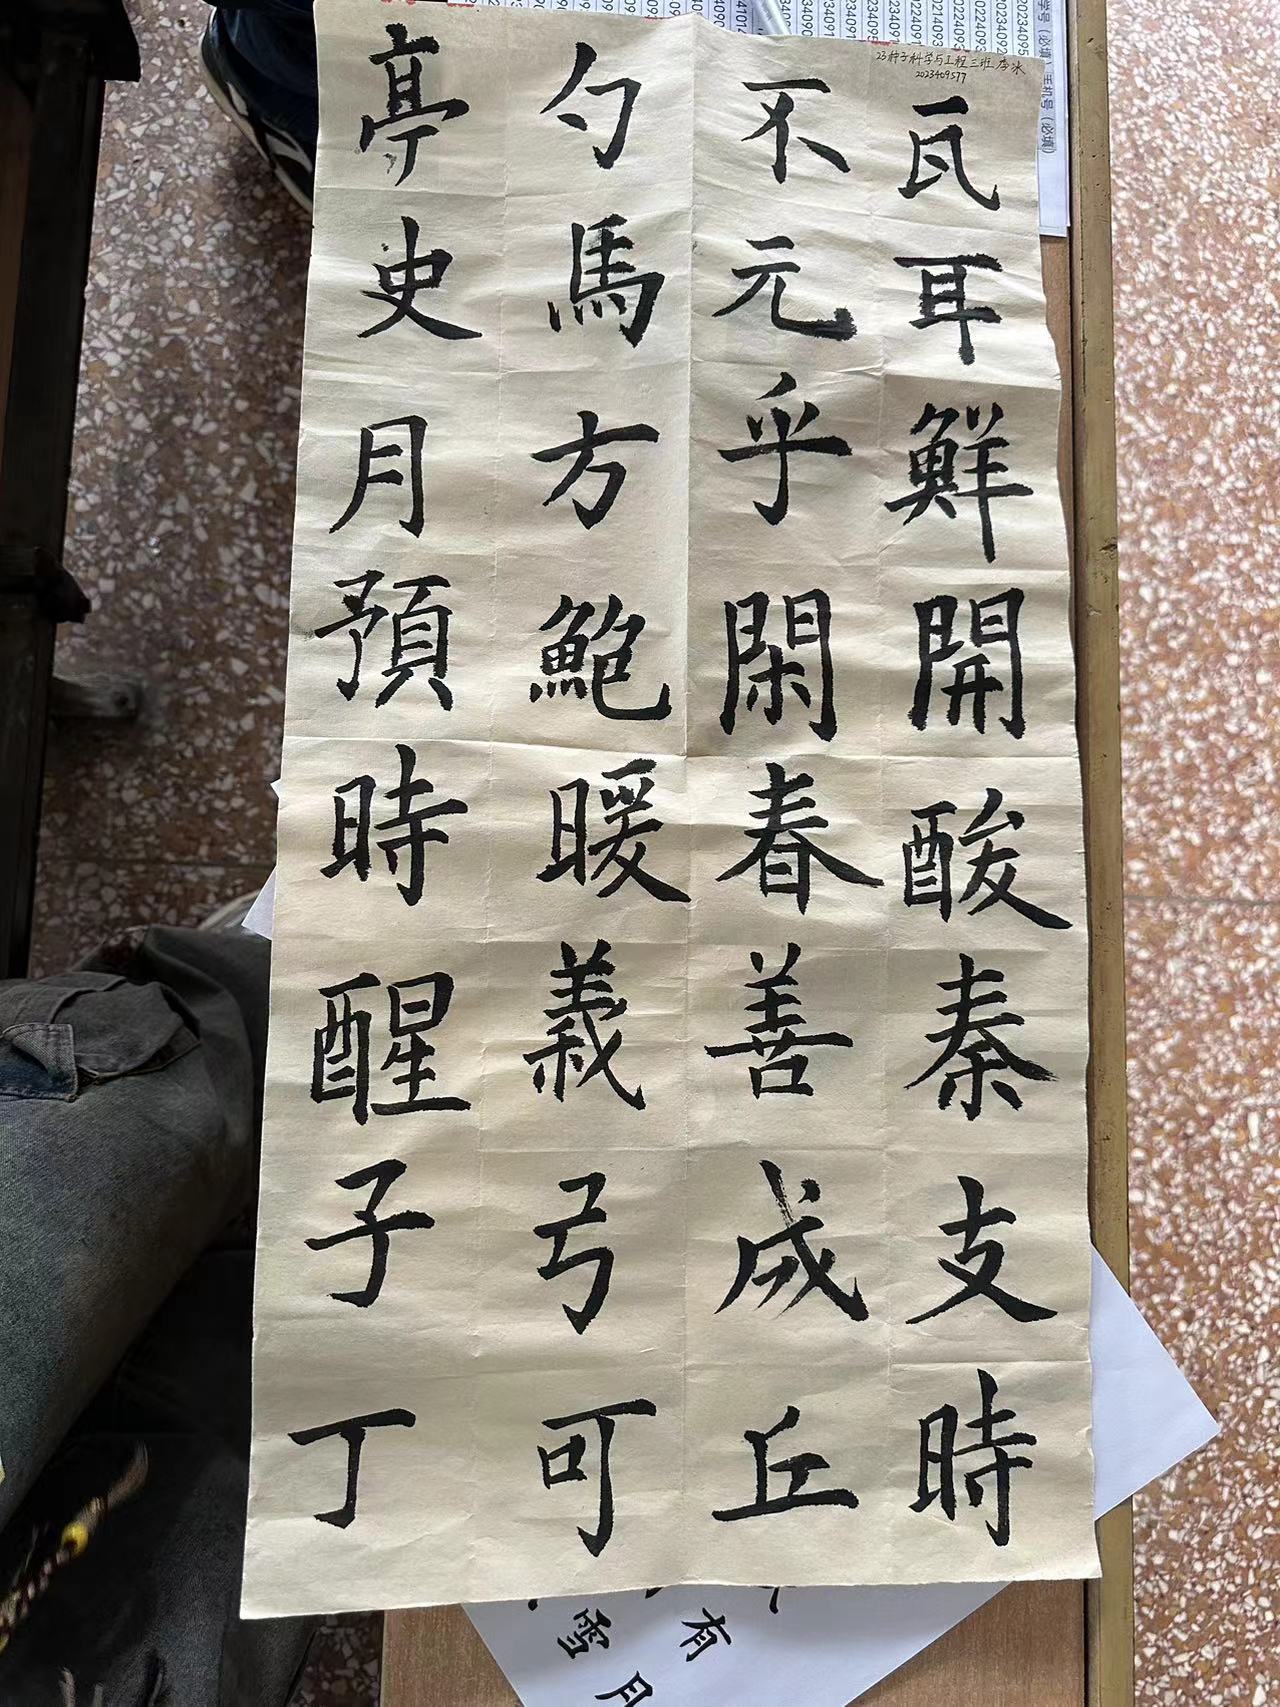 23种子科学与工程三班 李冰
2023409577
瓦耳鮮開酸秦支時
不元乎閑春善成丘
勺馬方鮑暖義弓可
亭史月預時醒子丁
学号（必填）
手机号（必填）
有
雪
月